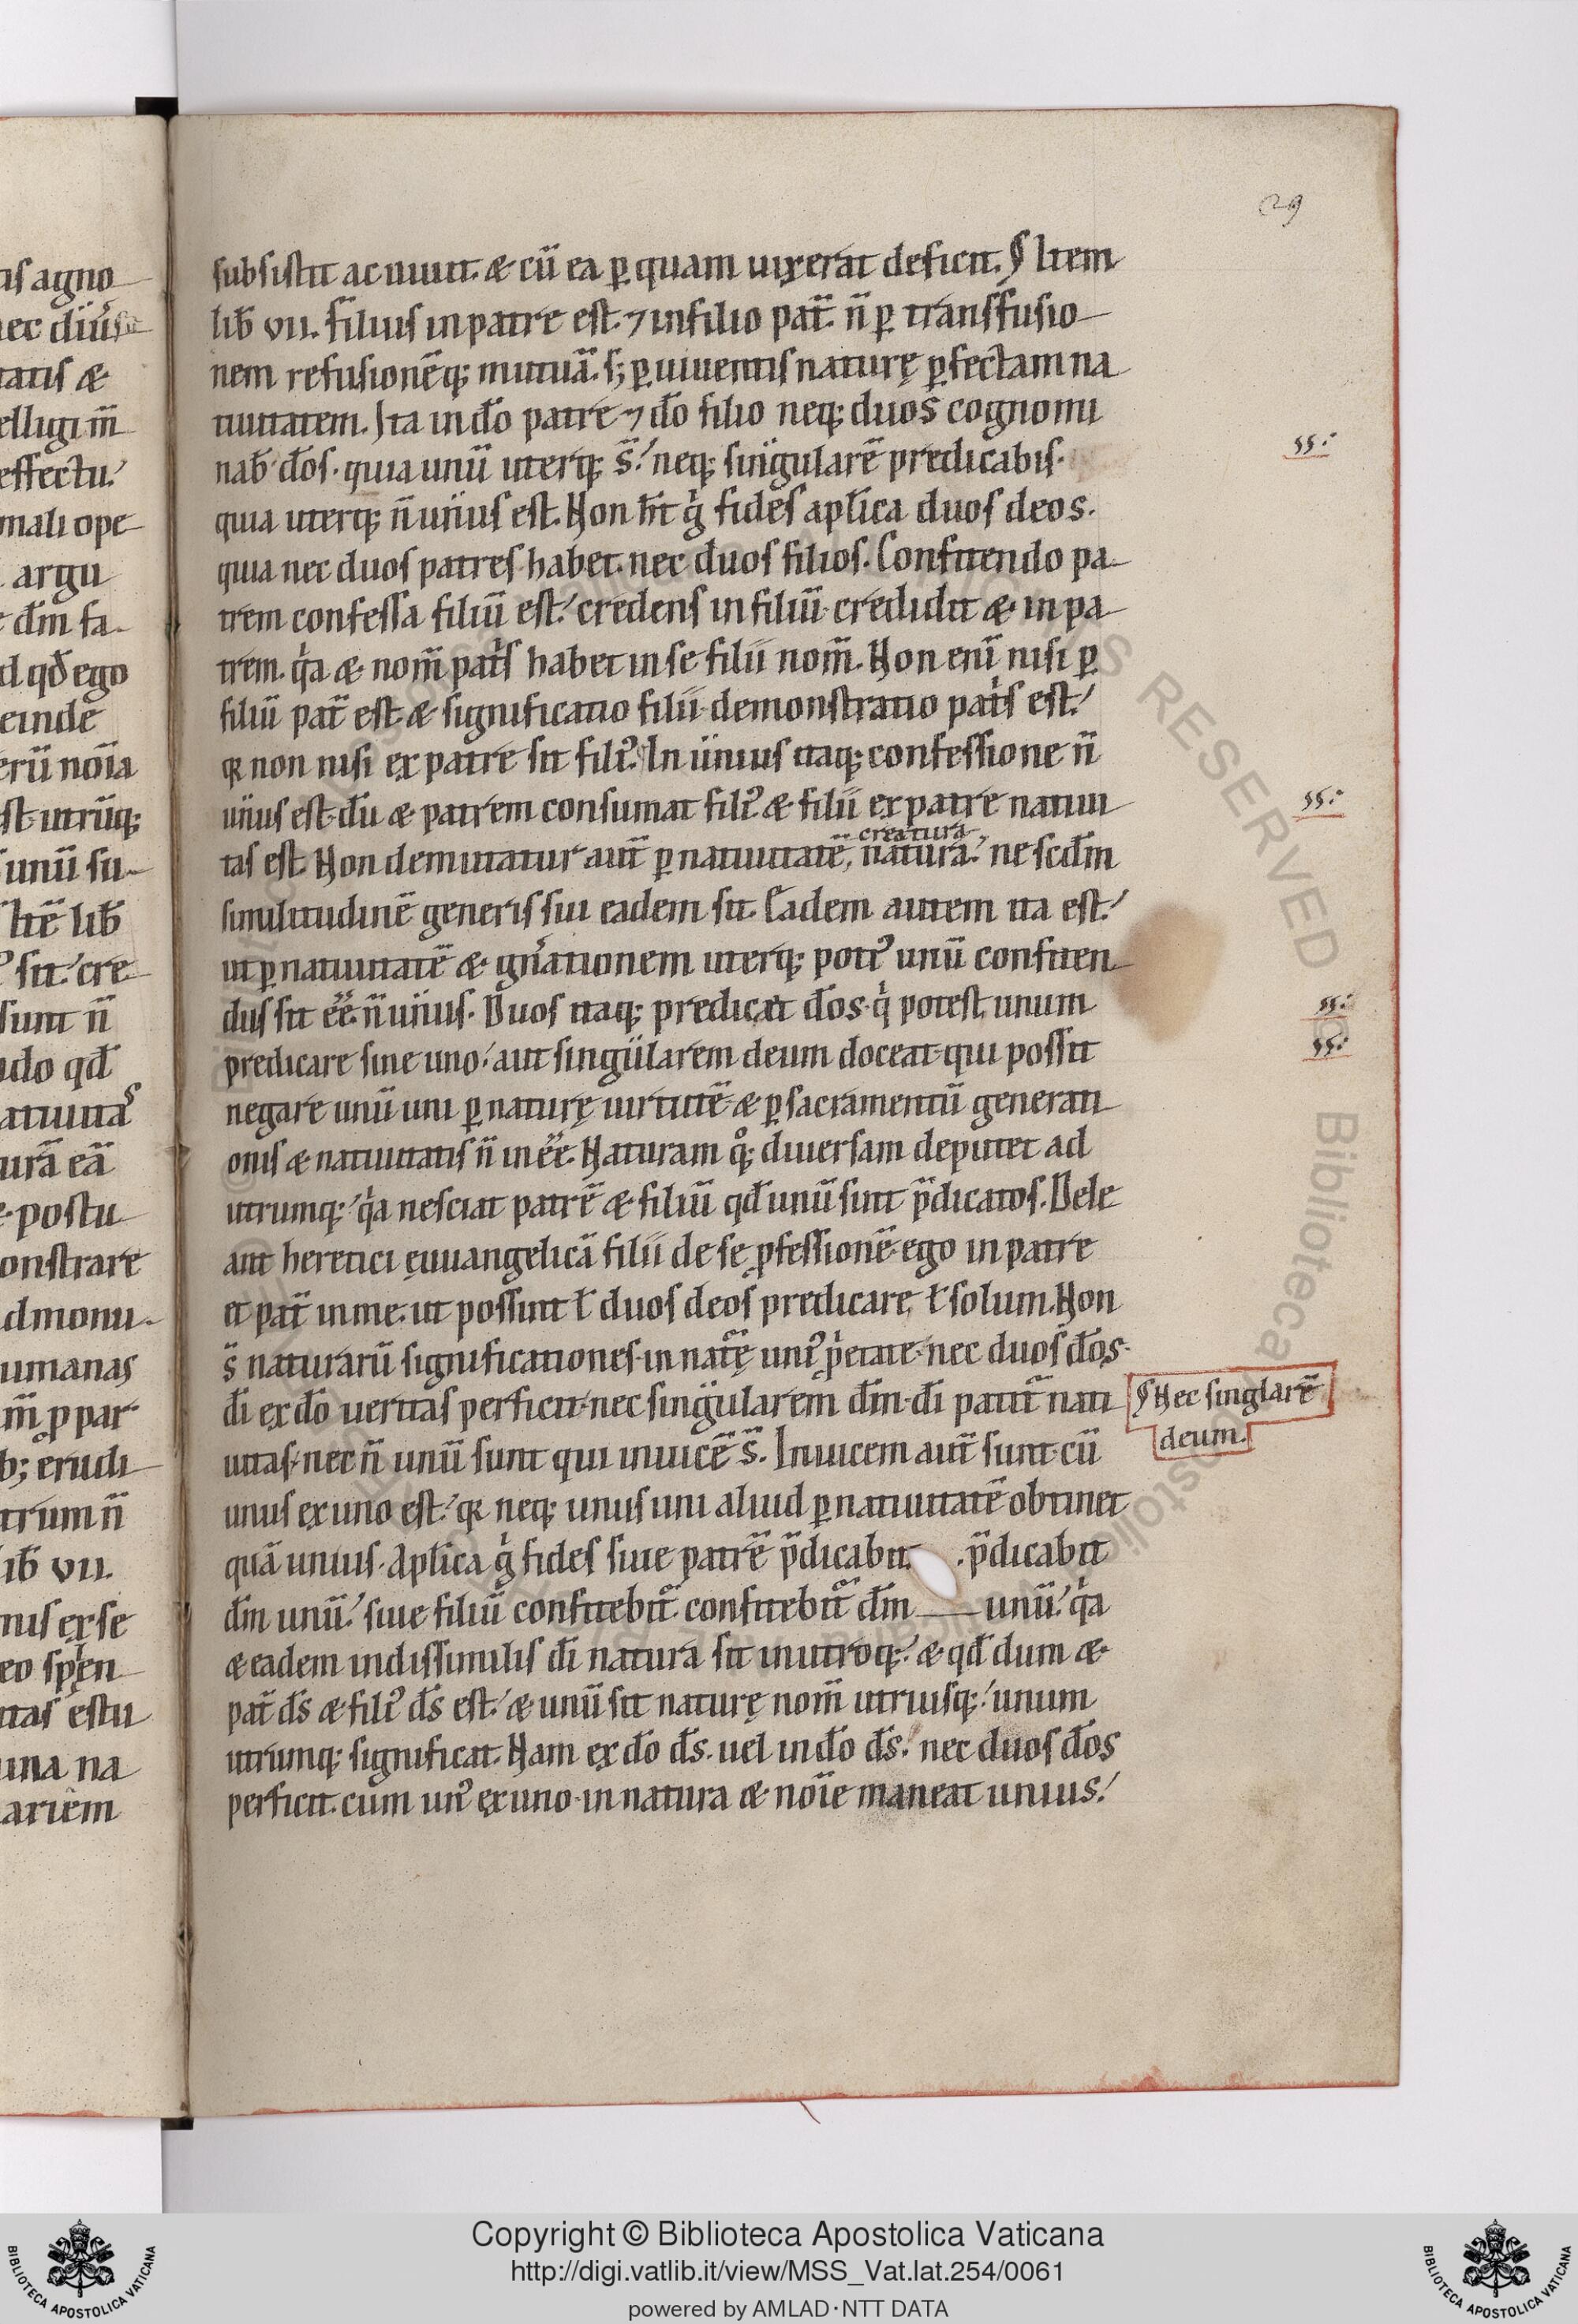 29
subsistit ac uiuit. & cū ea ꝑ quam uixerat deficit. ¶ Item
lib̄ vii. filius in patre est. ⁊ in filio pat̄. n̄ ꝑ transfusio
nem refusionēq; mutuā. s; ꝑ uiuentis naturę ꝑfectam na
tiuitatem. Ita in dō patre ⁊ dō filio neq; duos cognomi
nab̄ dōs. quia unū uterq; s̄. neq; singularē predicabis.
quia uterq; n̄ unius est. Non h̄t g̍ fides aplica duos deos.
quia nec duos patres habet. nec duos filios. Confitendo pa
trem confessa filiū est. credens in filiū credidit & in pa
trem. q̍a & nom̄ pat̍s habet in se filii nom̄. Non enī nisi ꝑ
filiū pat̄ est. & significatio filii demonstratio pat̍s est.
qꝛ non nisi ex patre sit fili᾿. In unius itaq; confessione n̄
unius est. dū & patrem consumat fili᾿ & filii ex patre natiui
creatura
tas est. Non demutatur aut̄ ꝑ natiuitatē, natura. ne scd̄m
similitudinē generis sui eadem sit. Eadem autem ita est.
ut ꝑ natiuitatē & gn̄ationem uterq; poti᾿ unū confiten
dus sit ēē. n̄ unius. Duos itaq; predicet dōs. q̍ potest unum
predicare sine uno. aut singularem deum doceat. qui possit
negare unū uni ꝑ naturę uirtutē & ꝑ sacramentū generati
onis & natiuitatis n̄ inēē. Naturam qͦ; diuersam deputet ad
utrumq; q̍a nesciat patrē & filiū qd̄ unū sint p̄dicatos. Dele
ant heretici ęuuangelicā filii de se ꝓfessionē. ego in patre
et pat̄ in me. ut possint ł duos deos predicare, ł solum. Non
s̄ naturarū significationes in nat̄ę uni᾿ ꝓp̍etate. nec duos dōs.
dī ex dō ueritas perficit. nec singularem dm̄. dī patit̄ nati
¶ Nec singlarē
deum.
uitas. nec n̄ unū sunt qui inuicē s̄. Inuicem aut̄ sunt. cū
unus ex uno est. qꝛ neq; unus uni aliud ꝑ natiuitatē obtinet
quā unius. Aplica g̍ fides siue patrē p̄dicabit. p̄dicabit
dm̄ unū. siue filiū confitebit̄. confitebit̄ dm̄ unū. q̍a
& eadem indissimilis dī natura sit in utroq;. & qd̄ dum &
pat̄ ds̄ & fili᾿ ds̄ est. & unū sit naturę nom̄ utriusq;. unum
utrumq; significat. Nam ex dō ds̄. uel in dō ds̄. nec duos dōs
perficit. cum un᾿ ex uno in natura & noīe maneat unius.
Copyright © Biblioteca Apostolica Vaticana
http://digi.vatlib.it/view/MSS_Vat.lat.254/0061
powered by AMLAD·NTT DATA